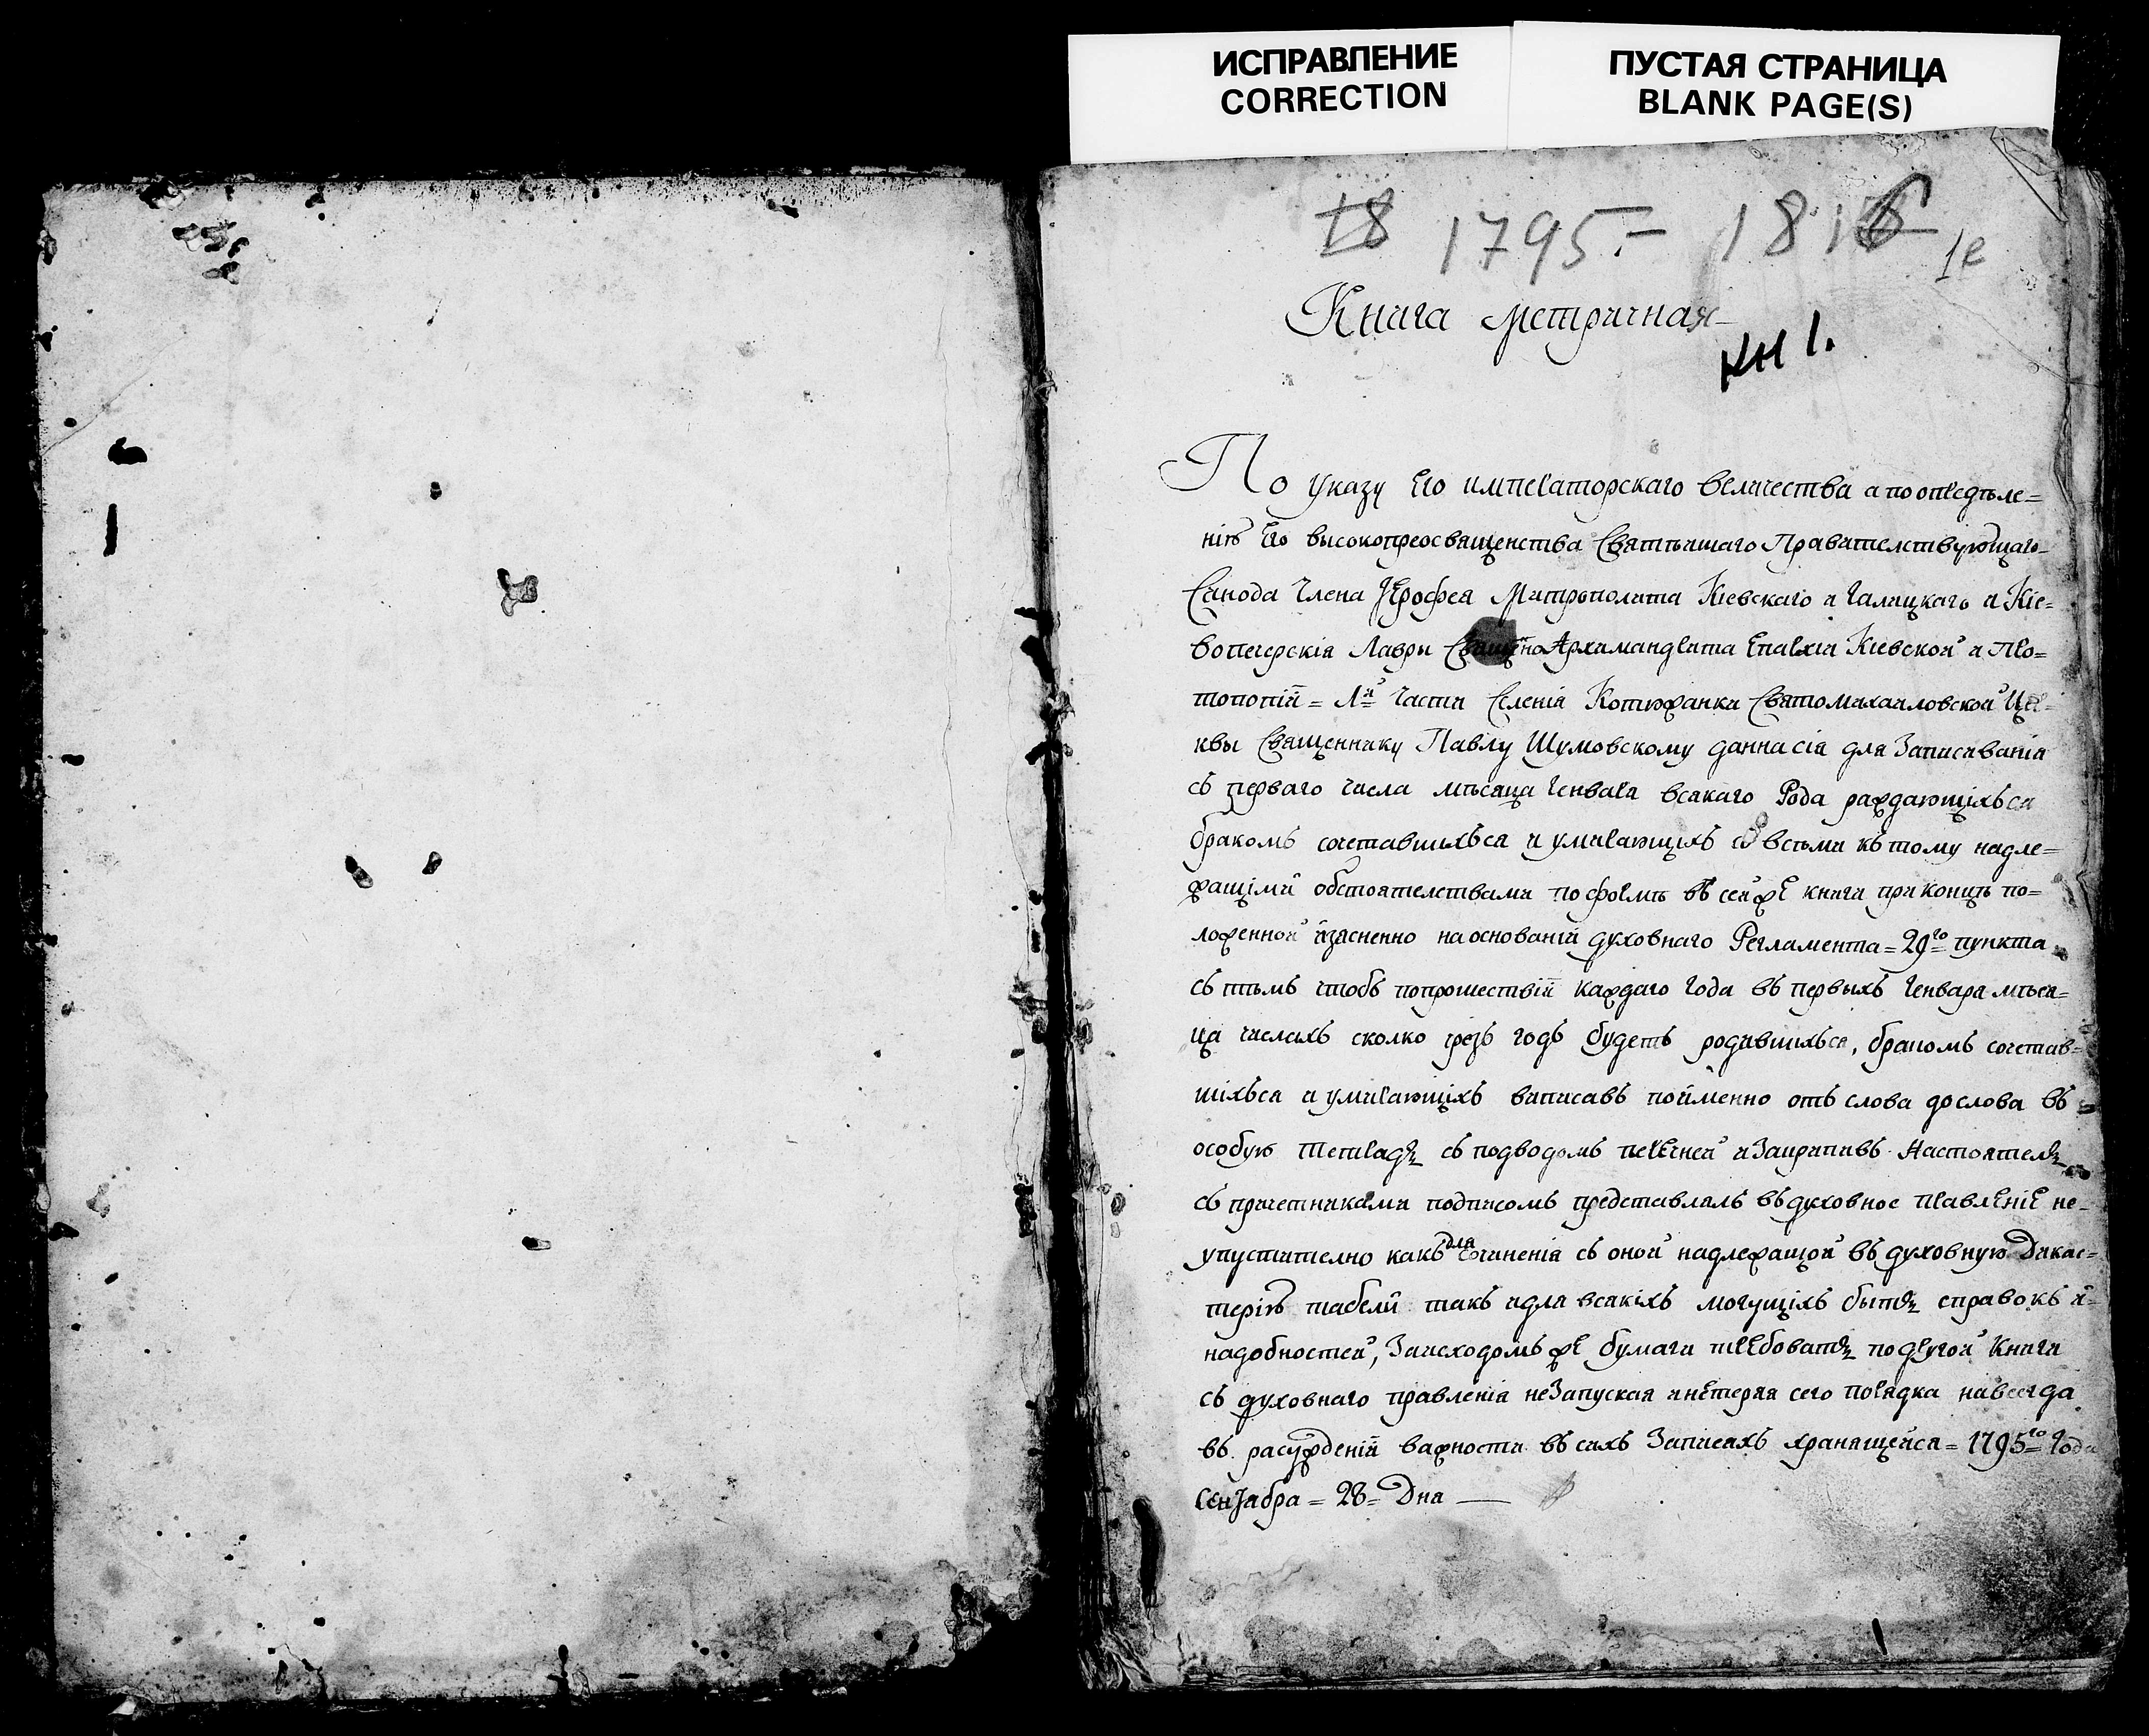 ИСПРАВЛЕНИЕ
CORRECTION
ПУСТАЯ СТРАНИЦА
BLANK PAGE(S)
18 1795 - 1816
1е
Книга метричная
КН 1.
По указу Его императорскаго величества а по опредѣле=
нію Его высокопреосвященства Святѣишаго Правителствующаго
Синода члена Иерофея Митрополита Кіевскаго и Галицкаго и Кіе=
вопечерскія Лавры Священно Архимандрита Епархіи Кіевской и Про=
топопіи = 1й части Селенія Котюжанки Святомихаиловской Цер=
квы Священнику Павлу Шумовскому данна сія для Записиванія
съ перваго числа мѣсяца генваря всякаго Рода раждающихъся
бракомъ сочетавшихъся и умирающихъ со всѣми къ тому надле=
жащіми обстоятелствами по формѣ въ сей же книги при концѣ по=
ложенной изясненно на основаніи духовнаго Регламента = 29го пункта
съ тѣмъ чтобъ попрошествіи каждаго года въ первыхъ Генваря мѣся=
ца числахъ сколко чрезъ годъ будетъ родившихъся, бракомъ сочетав=
шіхъся и умирающіхъ виписавъ поименно отъ слова до слова въ
особую тетрадь съ подводомъ перечней и Закрипивъ Настоятель
съ причетниками подписомъ представлялъ въ духовное правленіе не=
упустително какъ для сочиненія съ оной надлежащой въ духовную Дикас=
терію табели такъ и для всякіхъ могущіхъ быть справокъ и=
надобностей, За исходомъ же бумаги требовать по другой Книги
съ духовнаго правленія не Запуская и нетеряя сего порядка навсегда
въ разсужденіи важности въ сихъ Записахъ хранящейся = 1795го Года
Сентября = 28= Дня —